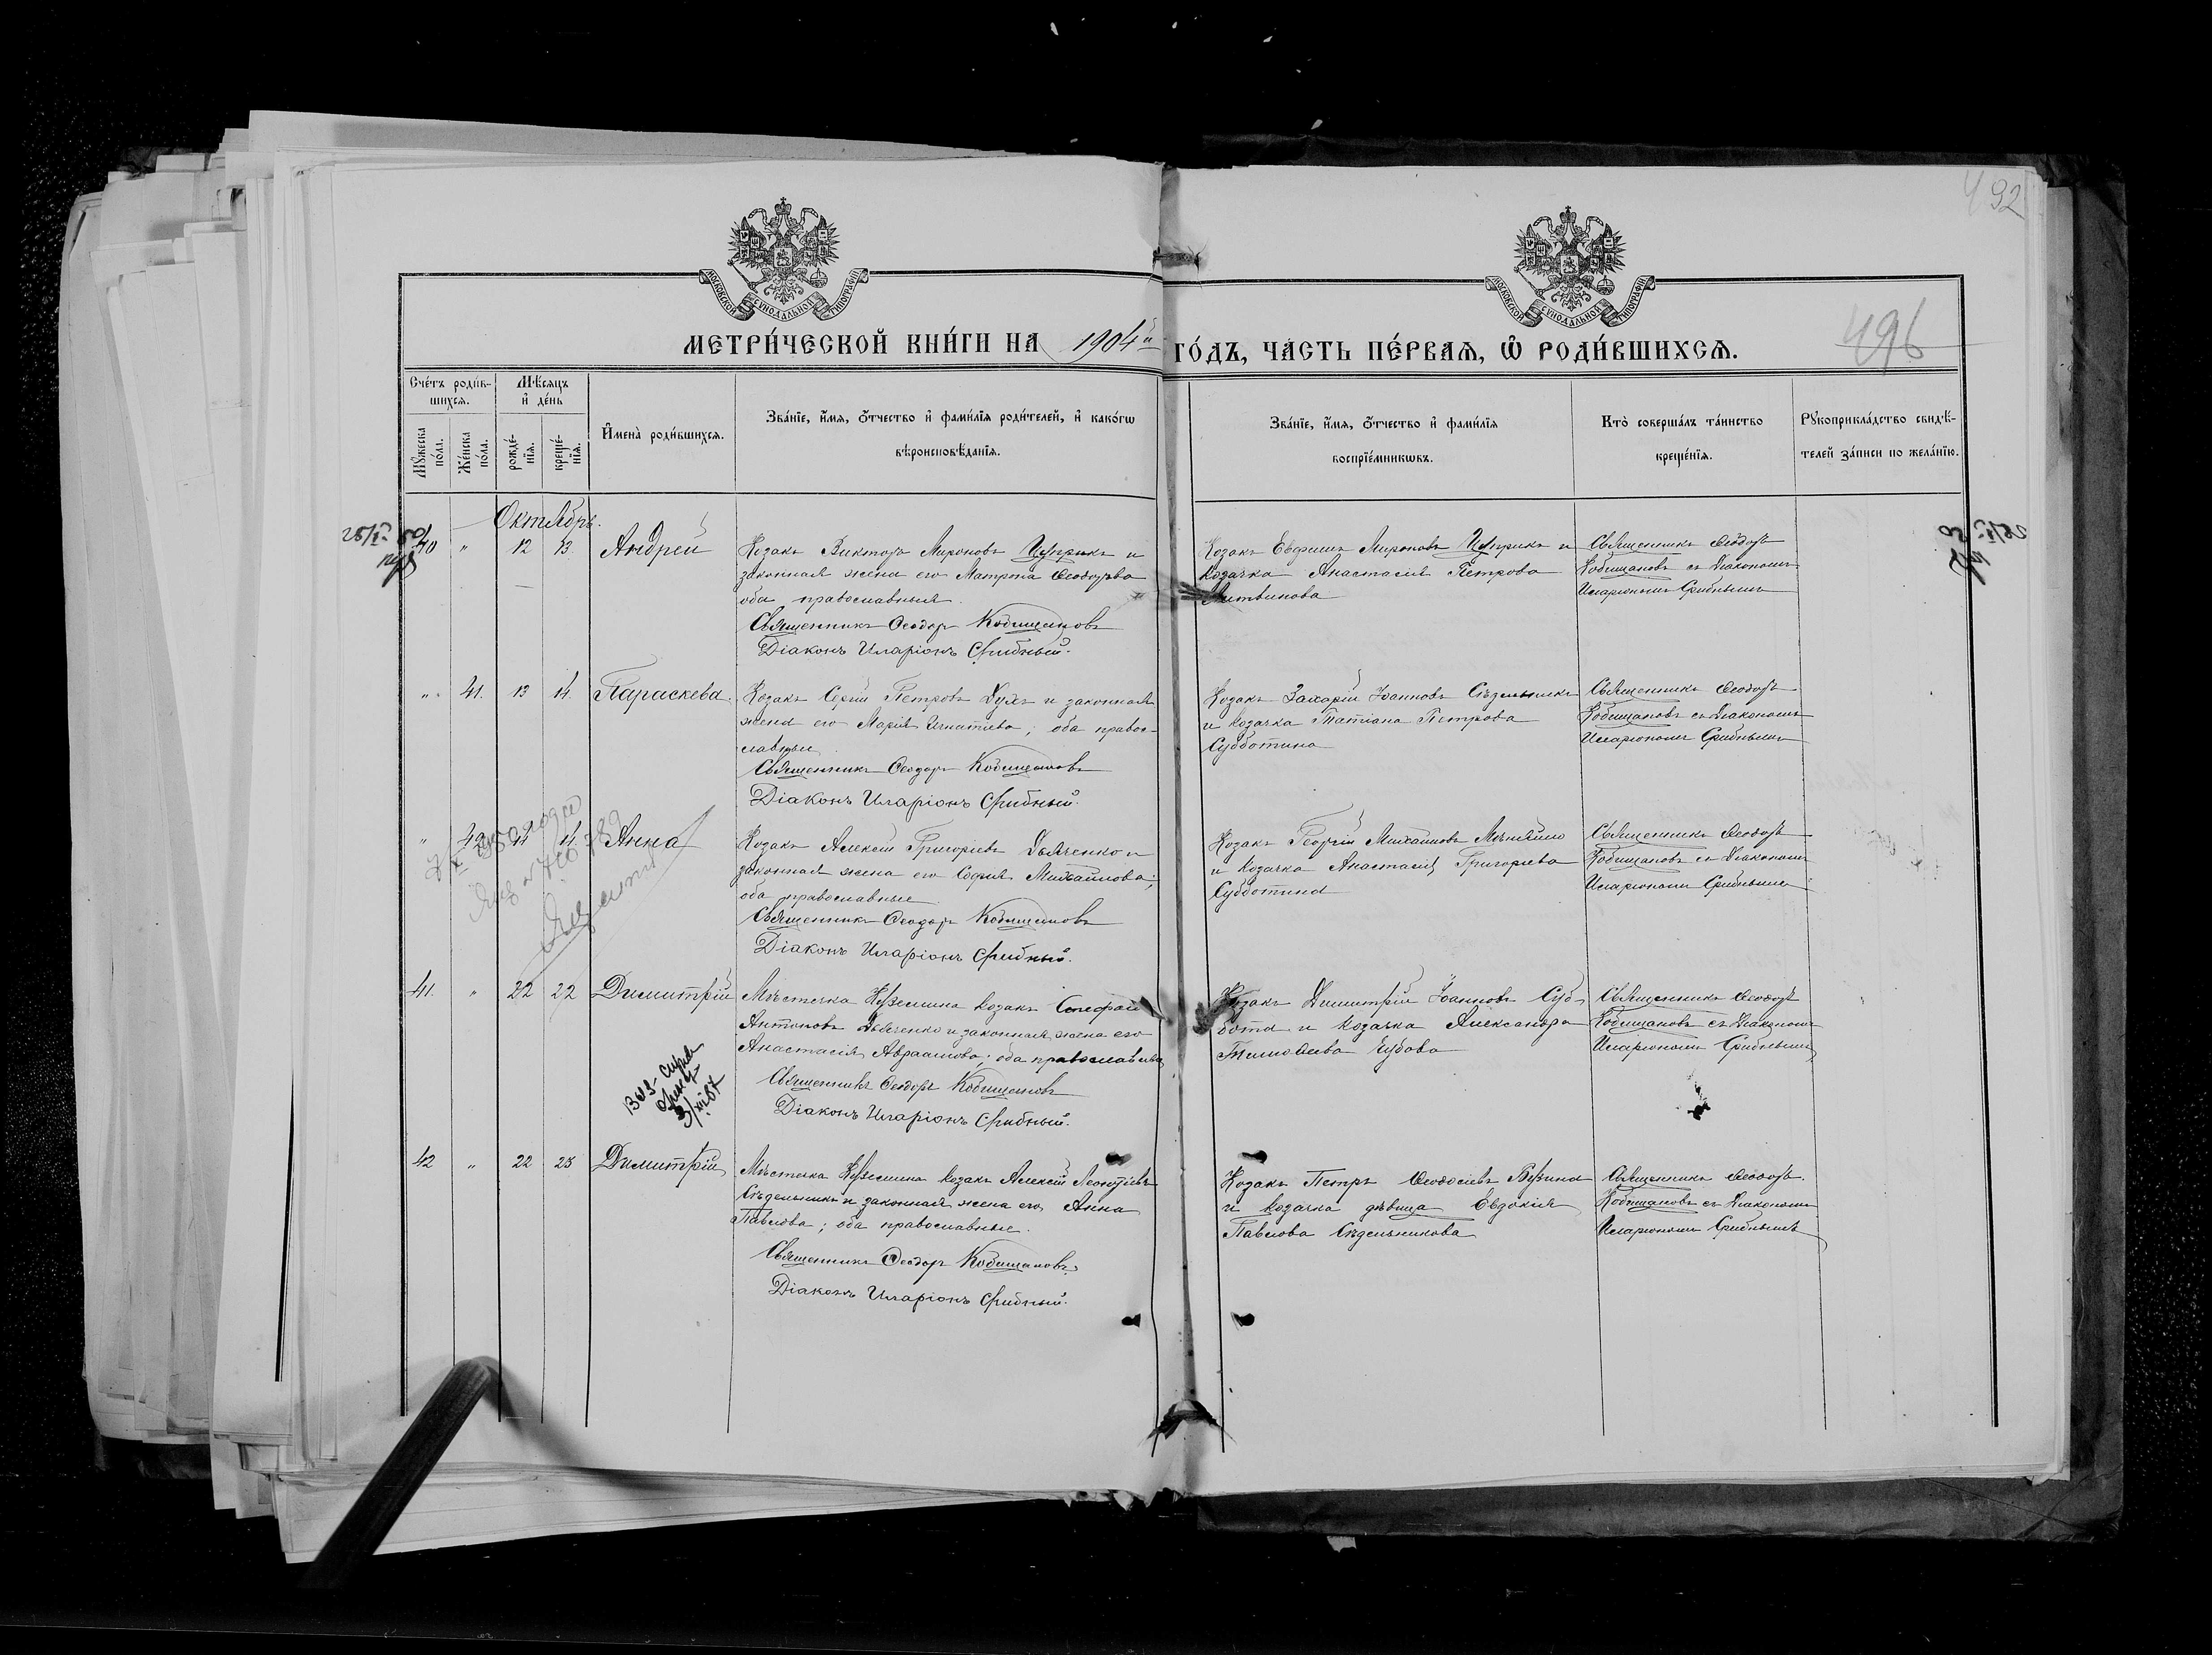 492
496
МОСКОВСКОЙ СѴНОДАЛЬНОЙ ТИПОГРАФІИ
МОСКОВСКОЙ СѴНОДАЛЬНОЙ ТИПОГРАФІИ
МЕТРИ́ЧЕСКОЙ КНИ́ГИ НА 1904й ГО́ДЪ, ЧА́СТЬ ПЕ́РВАѦ, Ѽ РОДИ́ВШИХСѦ.
Сче́тъ роди́в-
шихсѧ.
Мꙋжеска по́ла.
Же́нска по́ла.
Мѣ́сѧцъ
и҆ де́нь
рожде́-
нїѧ.
креще́-
нїѧ.
И҆мена̀ роди́вшихсѧ.
Зва́нїе, и҆́мѧ, ѻ҆́тчество и҆ фами́лїѧ роди́телей, и҆ како́гѡ
вѣроисповѣ́данїѧ.
Зва́нїе, и҆́мѧ, ѻ҆́тчество и҆ фами́лїѧ
воспрїе́мникѡвъ.
Кто̀ соверша́лъ та́инство
креще́нїѧ.
Рꙋкоприкла́дство свидѣ́-
телей за́писи по жела́нїю.
Октябрь.
40 " 12 13 Андрей
Козакъ Викторъ Мироновъ Цуприкъ и
законная жена его Матрона Ѳеодорова
оба православныя.
Священникъ Ѳеодоръ Кобищановъ
Діаконъ Иларіонъ Срибный.
Козакъ Евфимъ Мироновъ Цуприкъ и
козачка Анастасія Петрова
Литвинова
Священникъ Ѳеодоръ
Кобищановъ съ Діакономъ
Иларіономъ Срибнымъ
" 41. 13 14. Параскева.
Козакъ Сергій Петровъ и законная
жена его Марія Игнатіева; оба правос-
лавные.
Священникъ Ѳеодоръ Кобищановъ
Діаконъ Иларіонъ Срибный.
Козакъ Захарій Іоанновъ Сѣдельникъ
и козачка Татіана Петрова
Субботина
Священникъ Ѳеодоръ
Кобищановъ съ Діакономъ
Иларіономъ Срибнымъ
" 42 14 14. Анна
Козакъ Алексій Григоріевъ Дьяченко и
законная жена его Софія Михайлова;
оба православные.
Священникъ Ѳеодоръ Кобищановъ
Діаконъ Иларіонъ Срибный.
Козакъ Георгій Михайловъ
и козачка Анастасія Григорьева
Субботина
Священникъ Ѳеодоръ
Кобищановъ съ Діакономъ
Иларіономъ Срибнымъ
41. " 22 22 Димитрій
Мѣстечка козакъ Стефанъ
Антоновъ Дьяченко и законная жена его
Анастасія Авраамова; оба православные
Священникъ Ѳеодоръ Кобищановъ
Діаконъ Иларіонъ Срибный.
Козакъ Димитрій Іоанновъ Суб-
бота и козачка Александра
Тимоѳеева
Священникъ Ѳеодоръ
Кобищановъ съ Діакономъ
Иларіономъ Срибнымъ
42 " 22 23 Димитрій
Мѣстечка козакъ Алексій Леонтіевъ
Сѣдельникъ и законная жена его Анна
Павлова; оба православные.
Священникъ Ѳеодоръ Кобищановъ
Діаконъ Иларіонъ Срибный.
Козакъ Петръ Ѳеодосіевъ
и козачка дѣвица Евдокія
Павлова Сѣдельникова
Священникъ Ѳеодоръ
Кобищановъ съ Діакономъ
Иларіономъ Срибнымъ